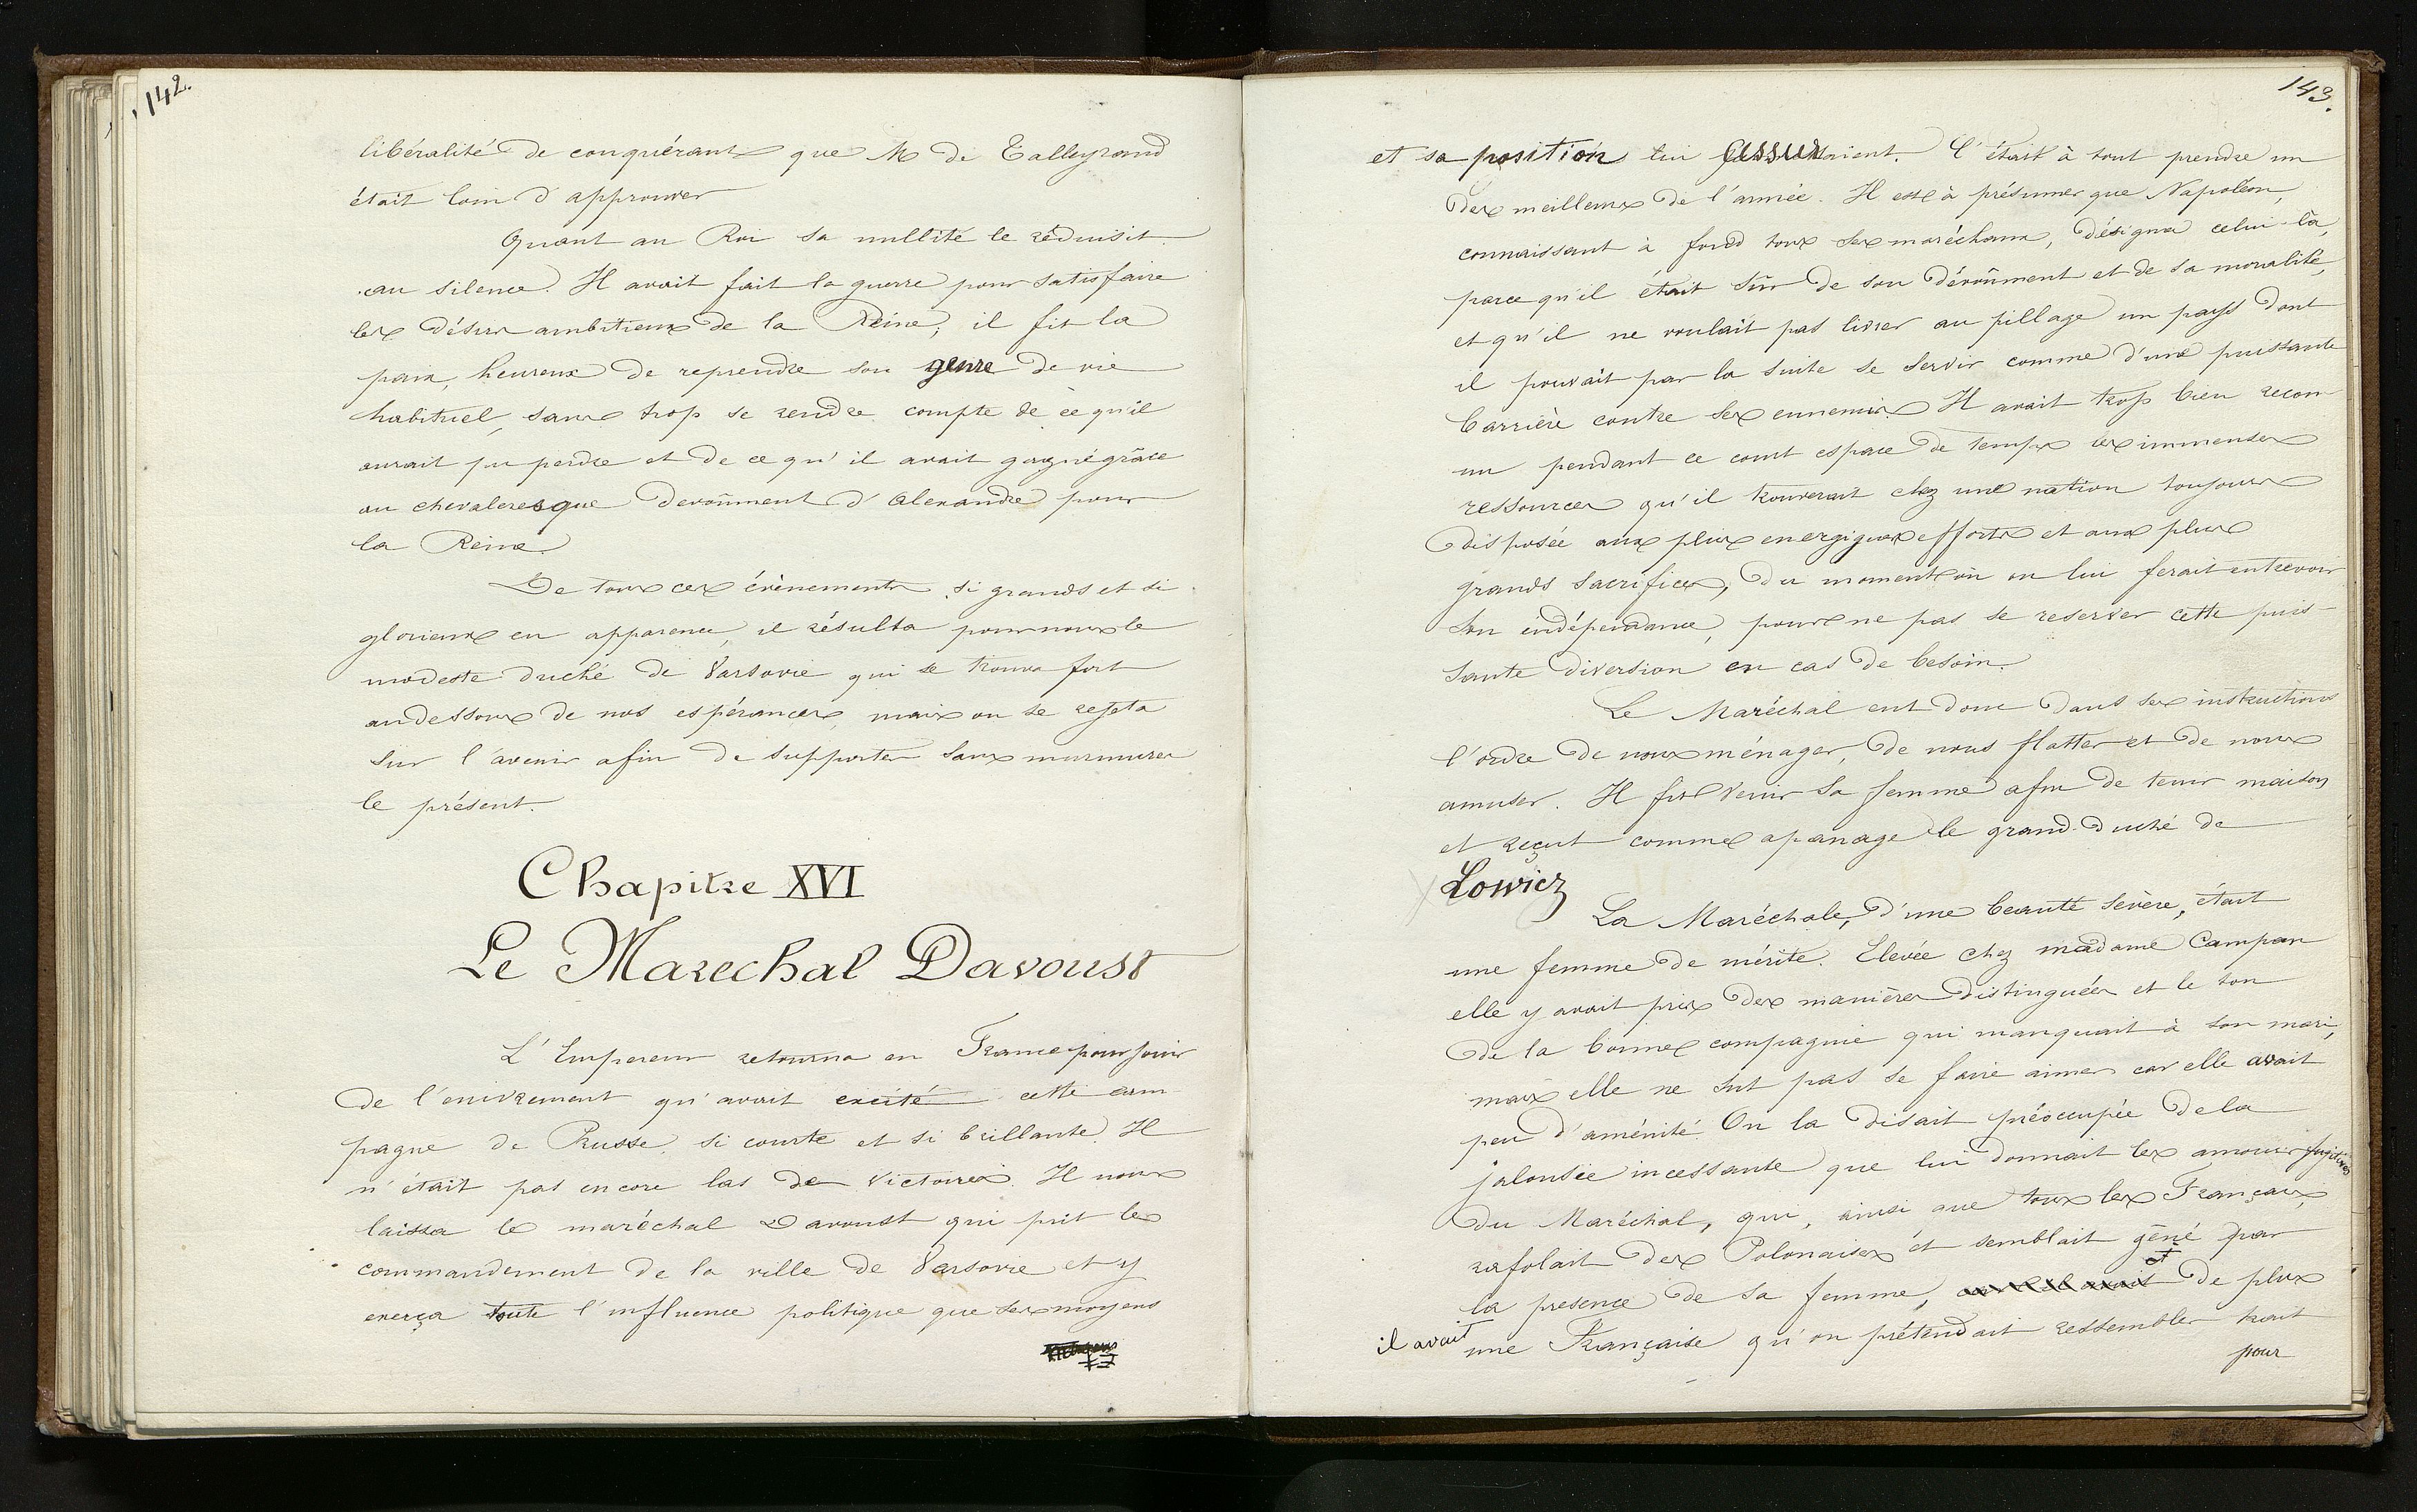 142.
libéralité de conquérant que M de Talleyrand
était loin d'approuver
Quant au Roi sa nullité le réduisit
au silence. Il avait fait la guerre pour satisfaire
les désirs ambitieux de la Reine; il fit la
paix, heureux de reprendre son genre de vie
habituel, sans trop se rendre compte de ce qu'il
aurait pu perdre et de ce qu'il avait gagné grâce
au chevaleresque devoûment d'Alexandre pour
la Reine.
De tous ces évènements si grands et si
glorieux en apparence, il résulta pour nous le
modeste duché de Varsovie qui se trouva fort
audessous de nos espérances, mais on se rejeta
sur l'avenir afin de supporter sans murmurer
le présent.
Chapitre XVI
Le Marechal Davoust
L'Empereur retourna en France pour jouir
de l'enivrement qu'avait excité cette cam
pagne de Prusse, si courte et si brillante. Il
n'était pas encore las de victoires. Il nous
laissa le maréchal Davoust qui prit le
commandement de la ville de Varsovie et y
exerça toute l'influence politique que ses moyens
143.
et sa position lui assuraient. C'était à tout prendre un
des meilleurs de l'armée. Il est à présumer que Napoléon,
connaissant à fond tous ses maréchaux, désigna celui-là,
parce qu'il était sûr de son dévoûment et de sa moralité,
et qu'il ne voulait pas livrer au pillage un pays dont
il pouvait par la suite se servir comme d'une puissante
barrière contre ses ennemis. Il avait trop bien recon-
nu pendant ce court espace de temps les immenses
ressources qu'il trouverait chez une nation toujours
disposée aux plus energiques efforts et aux plus
grands sacrifices, du moment où on lui ferait entrevoir
son indépendance, pour ne pas se reserver cette puis-
sante diversion en cas de besoin.
Le Maréchal eut donc dans ses instructions
l'ordre de nous ménager, de nous flatter et de nous
amuser. Il fit venir sa femme afin de tenir maison
et reçut comme apanage le grand-duché de
Lowicz
La Maréchale, d'une beauté sévère, était
une femme de mérite. Elevée chez madame Campan
elle y avait pris des manières distinguées et le ton
de la bonne compagnie qui manquait à son mari,
mais elle ne sut pas se faire aimer car elle avait
peu d'aménité. On la disait préoccupée de la
jalousie incessante que lui donnait les amours fugitives
du Maréchal, qui, ainsi que tous les Français,
rafolait des Polonaises et semblait gêné par
la presence de sa femme, et de plus
il avait une Française qu'on prétendait ressembler trait
pour